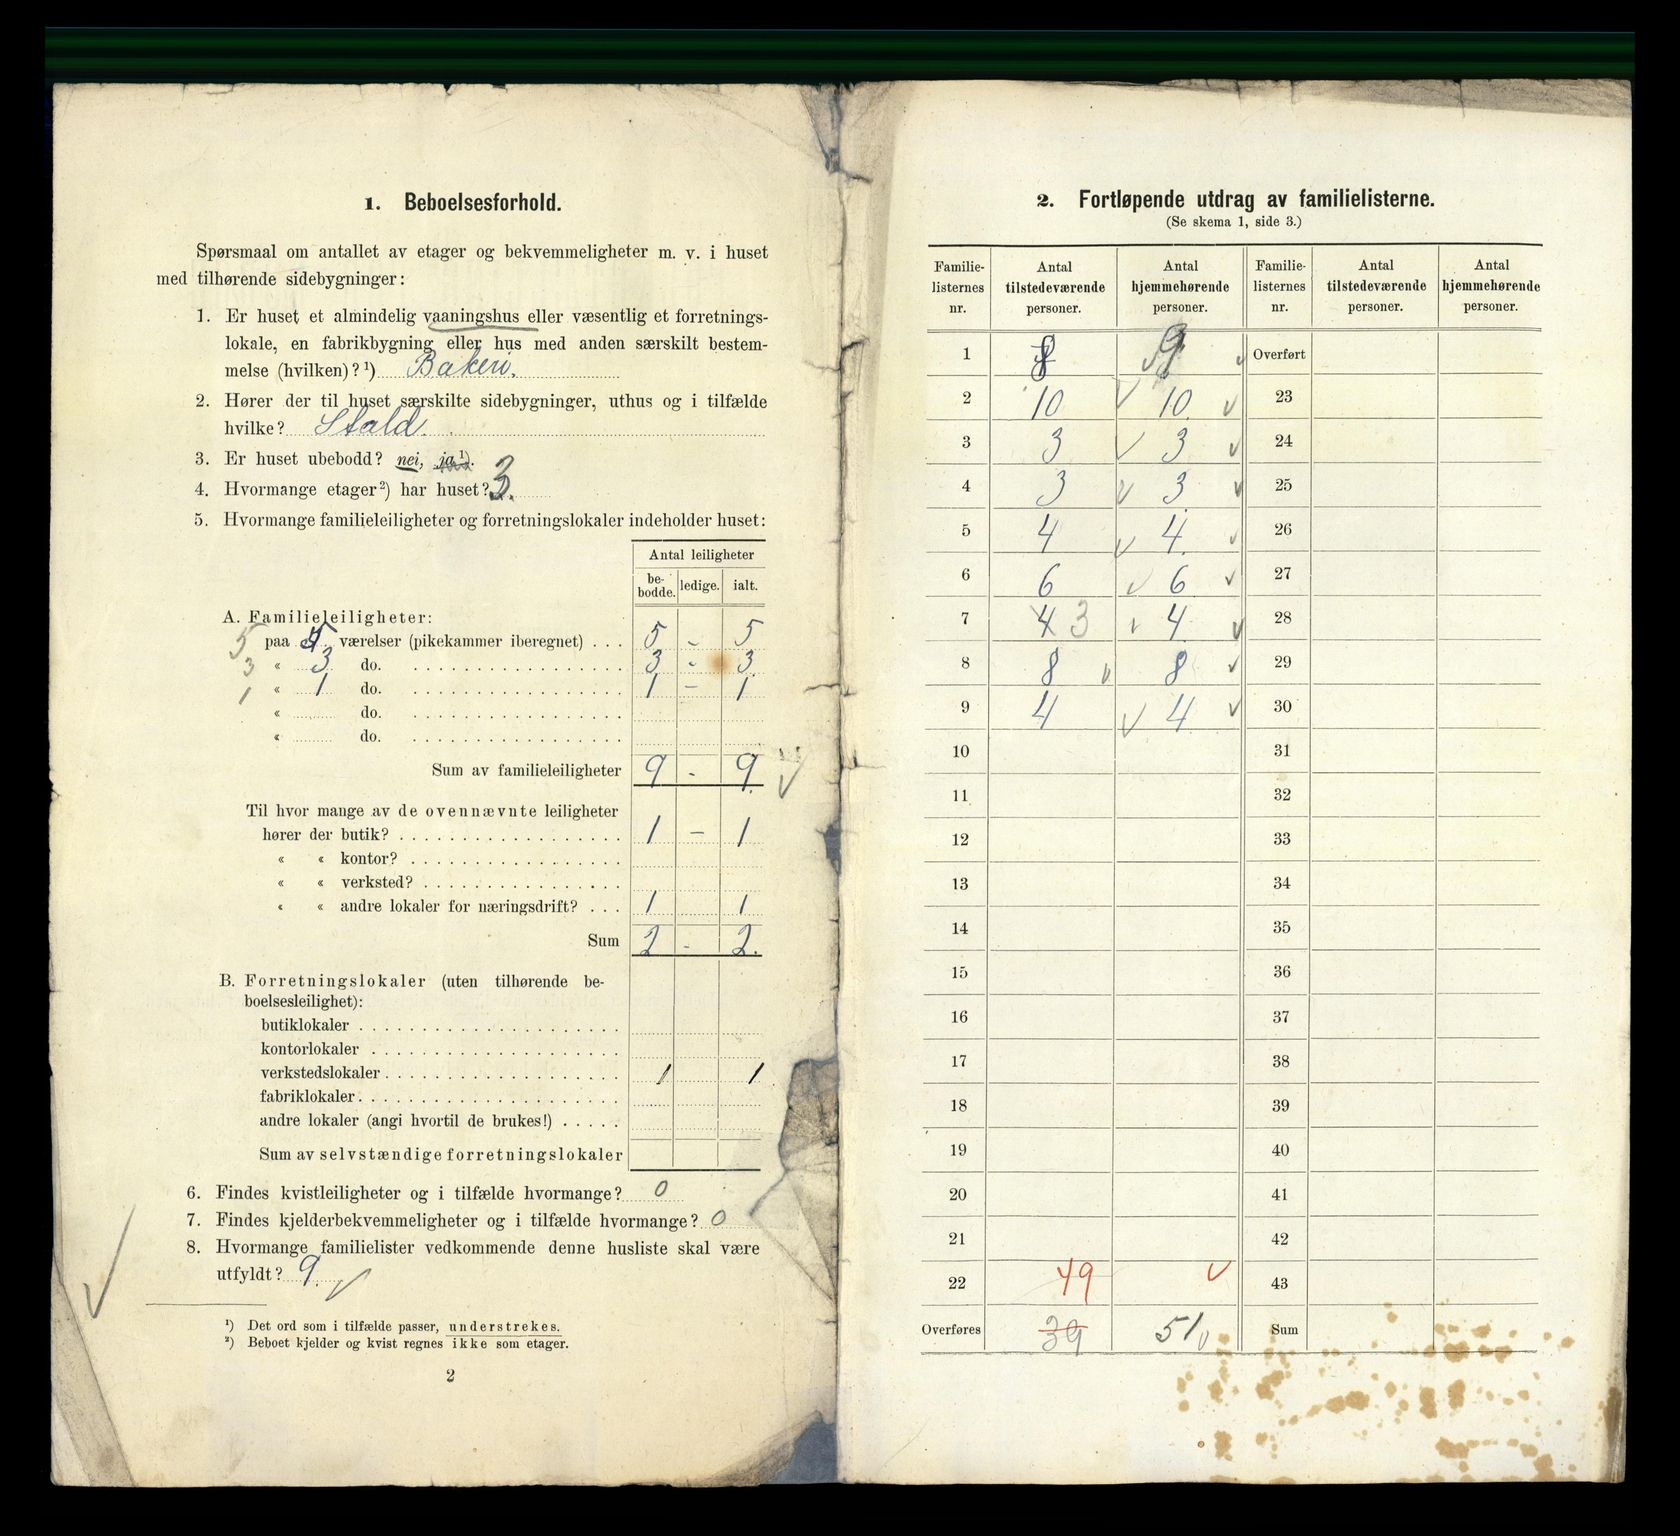 1. Beboelsesforhold.
Spørsmaal om antallet av etager og bekvemmeligheter m. v. i huset
med tilhørende sidebygninger:
1. Er huset et almindelig vaaningshus eller væsentlig et forretnings-
lokale, en fabrikbygning eller hus med anden særskilt bestem-
melse (hvilken)? ¹) Bakeri.
2. Hører der til huset særskilte sidebygninger, uthus og i tilfælde
hvilke? Stald.
3. Er huset ubebodd? nei, ja ¹).
4. Hvormange etager ²) har huset? 3.
5. Hvormange familieleiligheter og forretningslokaler indeholder huset:
Antal leiligheter
be-bodde. ledige. ialt.
A. Familieleiligheter:
5 paa værelser (pikekammer iberegnet) . . . 5 - 5
3 « 3 do. 3 - 3
1 « 1 do. 1 - 1
« do.
« do.
Sum av familieleiligheter 9 - 9. √
Til hvor mange av de ovennævnte leiligheter
hører der butik? 1 — 1
« « kontor?
« « verksted?
« « andre lokaler for næringsdrift? . . . 1 1
Sum 2 - 2.
B. Forretningslokaler (uten tilhørende be-
boelsesleilighet):
butiklokaler
kontorlokaler
verkstedslokaler 1 1
fabriklokaler
andre lokaler (angi hvortil de brukes!)
Sum av selvstændige forretningslokaler
6. Findes kvistleiligheter og i tilfælde hvormange? 0
7. Findes kjelderbekvemmeligheter og i tilfælde hvormange? 0
8. Hvormange familielister vedkommende denne husliste skal være
utfyldt? 9. √
¹) Det ord som i tilfælde passer, understrekes.
²) Beboet kjelder og kvist regnes ikke som etager.
2
2. Fortløpende utdrag av familielisterne.
(Se skema 1, side 3.)
Familie-listernes nr. Antal tilstedeværende personer. Antal hjemmehørende personer. Familie-listernes nr. Antal tilstedeværende personer. Antal hjemmehørende personer.
1 8 √ 9 √ Overført
2 10 √ 10. √ 23
3 3 √ 3 √ 24
4 3 √ 3. √ 25
5 4 √ 4. √ 26
6 6 √ 6 √ 27
7 4 3 √ 4 √ 28
8 8 √ 8 √ 29
9 4 √ 4 √ 30
10 31
11 32
12 33
13 34
14 35
15 36
16 37
17 38
18 39
19 40
20 41
21 42
22 49 √ 43
Overføres 39 51 √ Sum